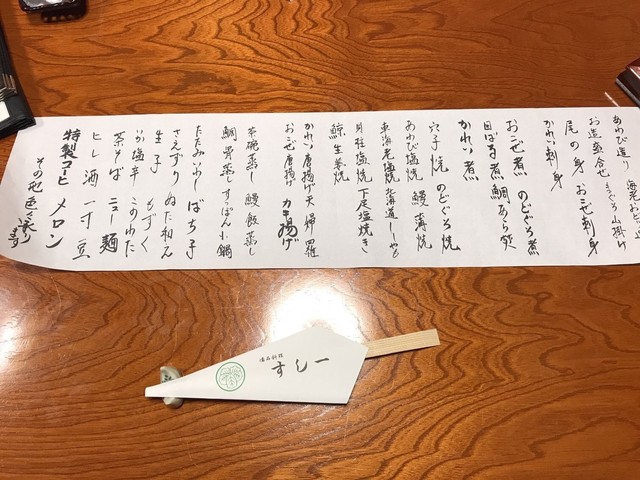 あわび造り 海老おどり造
お造盛合せ まぐろ山掛け
尾の身 おこぜ刺身
かわい刺身
おこぜ煮 のどぐろ煮
目ばる煮 鯛あら煮
かれい煮
穴子焼 のどぐろ焼
あわび塩焼 鰻蒲焼
車海老塩焼 北海道ししゃも
貝柱塩焼 下足塩焼き
鯨生姜焼
かれい唐揚げ 天婦羅
おこぜ唐揚げ カキ揚げ
茶碗蒸し 鰻飯蒸し
鯛骨蒸し すっぽん小鍋
たたみいわし ばち子
さえずり ぬた和え
生子 もずく
いか塩辛 このわた
茶そば ニュー麺
ヒレ酒 一寸豆
特製コーヒ メロン
その他色々承ります
懐石料理
すし一